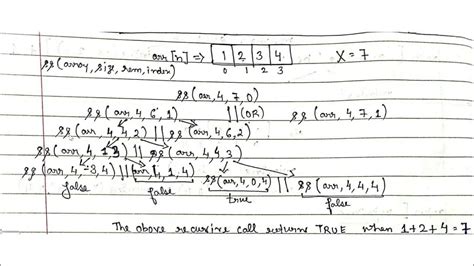 arr[n] => 1 2 3 4 X = 7
0 1 2 3
ss(array, size, rem, index)
ss(arr, 4, 7, 0)
ss(arr, 4, 6, 1) ||(OR) ss(arr, 4, 7, 1)
ss(arr, 4, 4, 2) || ss(arr, 4, 6, 2)
ss(arr, 4, 1, 3) || ss(arr, 4, 4, 3)
ss(arr, 4, -3, 4) || (arr, 4, 1, 4) ss(arr, 4, 0, 4) || ss(arr, 4, 4, 4)
false false true false
The above recursive call returns TRUE when 1+2+4=7